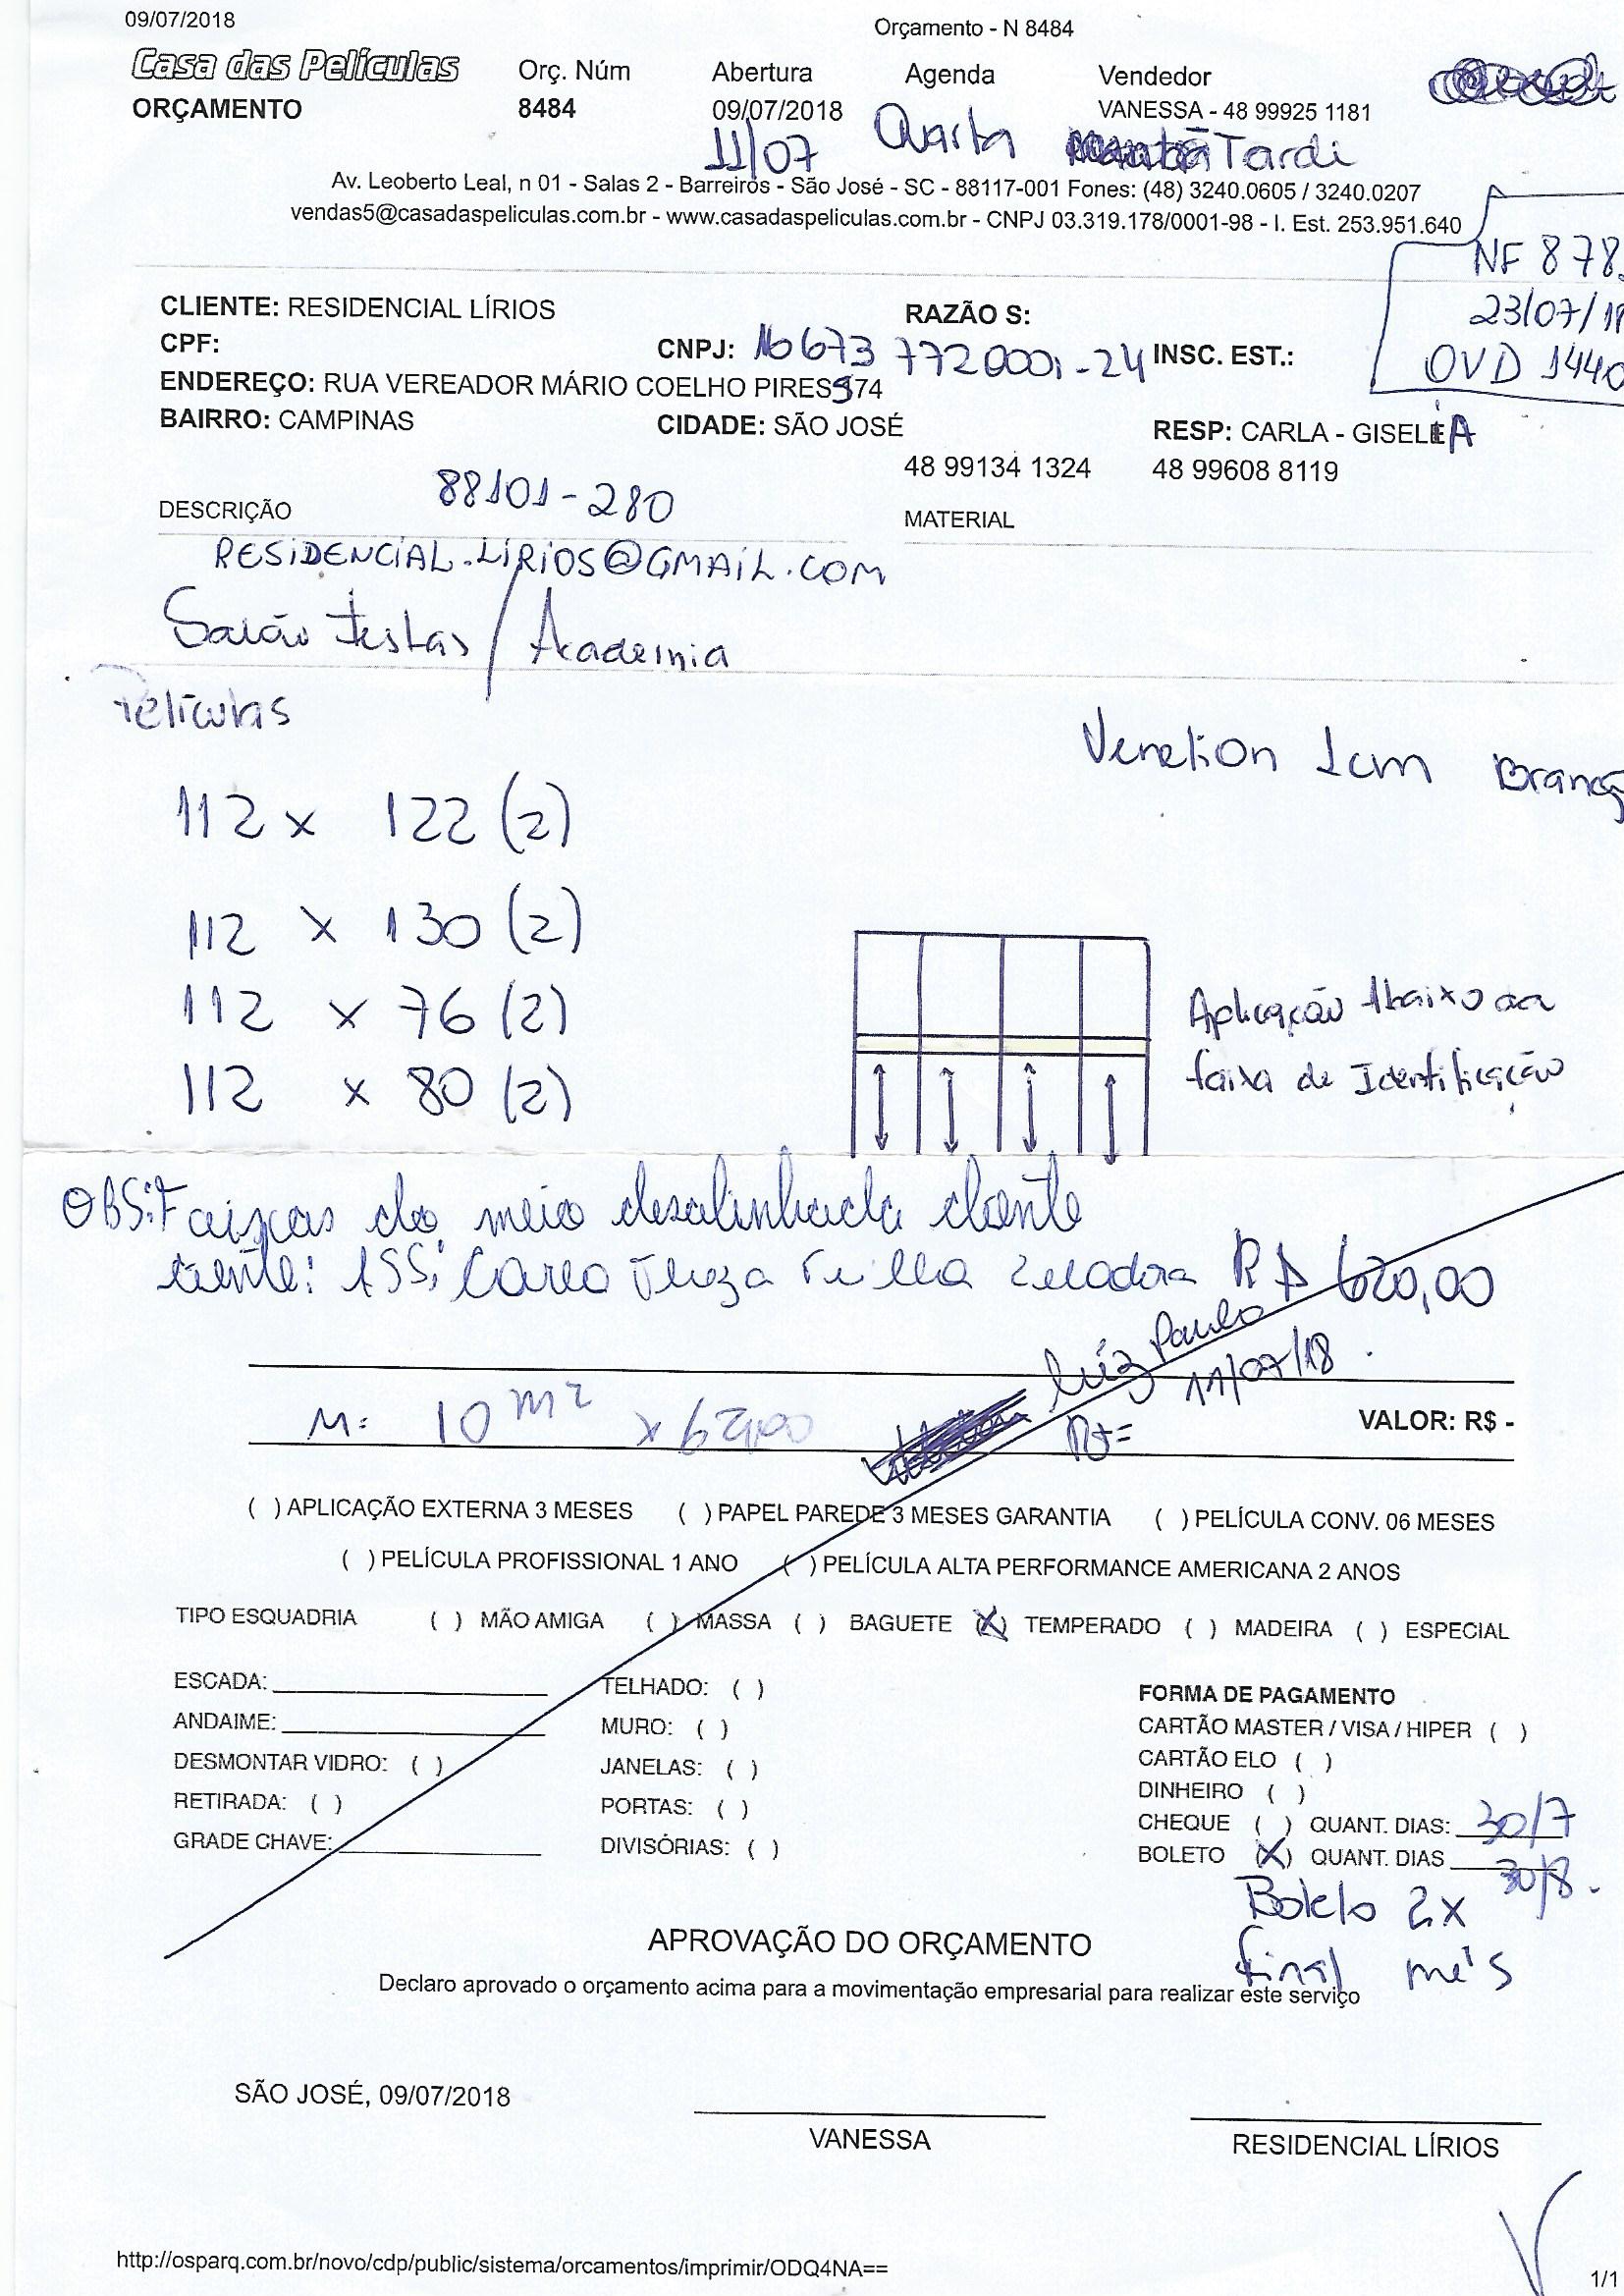 09/07/2018
Orçamento - N 8484
Casa das Películas
Orç. Núm
Abertura
Agenda
Vendedor
ORÇAMENTO
8484
09/07/2018
VANESSA - 48 99925 1181
11/07
Quarta
Tardi
Av. Leoberto Leal, n 01 - Salas 2 - Barreiros - São José - SC - 88117-001 Fones: (48) 3240.0605 / 3240.0207
vendas5@casadaspeliculas.com.br - www.casadaspeliculas.com.br - CNPJ 03.319.178/0001-98 - I. Est. 253.951.640
NF 878
23/07/18
OVD 1440
CLIENTE: RESIDENCIAL LÍRIOS
RAZÃO S:
CPF:
CNPJ: 16673 7720001-24
INSC. EST.:
ENDEREÇO: RUA VEREADOR MÁRIO COELHO PIRES 974
BAIRRO: CAMPINAS
CIDADE: SÃO JOSÉ
RESP: CARLA - GISELIA
48 99134 1324
48 99608 8119
DESCRIÇÃO
88101-280
MATERIAL
RESIDENCIAL.LIRIOS@GMAIL.COM
Salão Festas / Academia
Películas
Venetion 1cm Branca
112 x 122 (2)
112 x 130 (2)
112 x 76 (2)
112 x 80 (2)
Aplicação Abaixo da
faixa de Identificação
OBS: Faixas do meio desalinhada cliente
ciente: ASS: Zeladora R$ 620,00
Luiz Paulo
11/07/18
M: 10 m² x 62,00
R$=
VALOR: R$ -
( ) APLICAÇÃO EXTERNA 3 MESES ( ) PAPEL PAREDE 3 MESES GARANTIA ( ) PELÍCULA CONV. 06 MESES
( ) PELÍCULA PROFISSIONAL 1 ANO ( ) PELÍCULA ALTA PERFORMANCE AMERICANA 2 ANOS
TIPO ESQUADRIA ( ) MÃO AMIGA ( ) MASSA ( ) BAGUETE (X) TEMPERADO ( ) MADEIRA ( ) ESPECIAL
ESCADA:
ANDAIME:
DESMONTAR VIDRO: ( )
RETIRADA: ( )
GRADE CHAVE:
TELHADO: ( )
MURO: ( )
JANELAS: ( )
PORTAS: ( )
DIVISÓRIAS: ( )
FORMA DE PAGAMENTO
CARTÃO MASTER / VISA / HIPER ( )
CARTÃO ELO ( )
DINHEIRO ( )
CHEQUE ( ) QUANT. DIAS: 30/7
BOLETO (X) QUANT. DIAS 30/8.
Boleto 2x
final mês
APROVAÇÃO DO ORÇAMENTO
Declaro aprovado o orçamento acima para a movimentação empresarial para realizar este serviço
SÃO JOSÉ, 09/07/2018
VANESSA
RESIDENCIAL LÍRIOS
http://osparq.com.br/novo/cdp/public/sistema/orcamentos/imprimir/ODQ4NA==
1/1